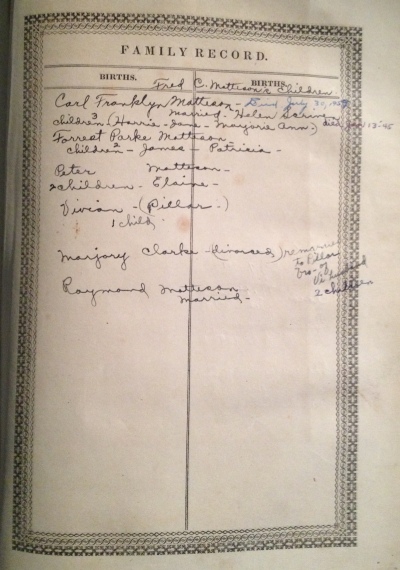 FAMILY RECORD.
BIRTHS. BIRTHS.
Fred C. Matteson's Children
Carl Franklyn Matteson - Died July 30,
married - Helen
children 3 (Harris - Jane - Marjorie Ann.)
Forrest Parke Matteson
children 2 - James - Patricia -
Peter Matteson -
2 children - Elaine -
Vivian - (Pillar -)
1 child
Marjory Clarke - (divorced) remarried
to Pillar
bro- of
2 children
Raymond Matteson
married -